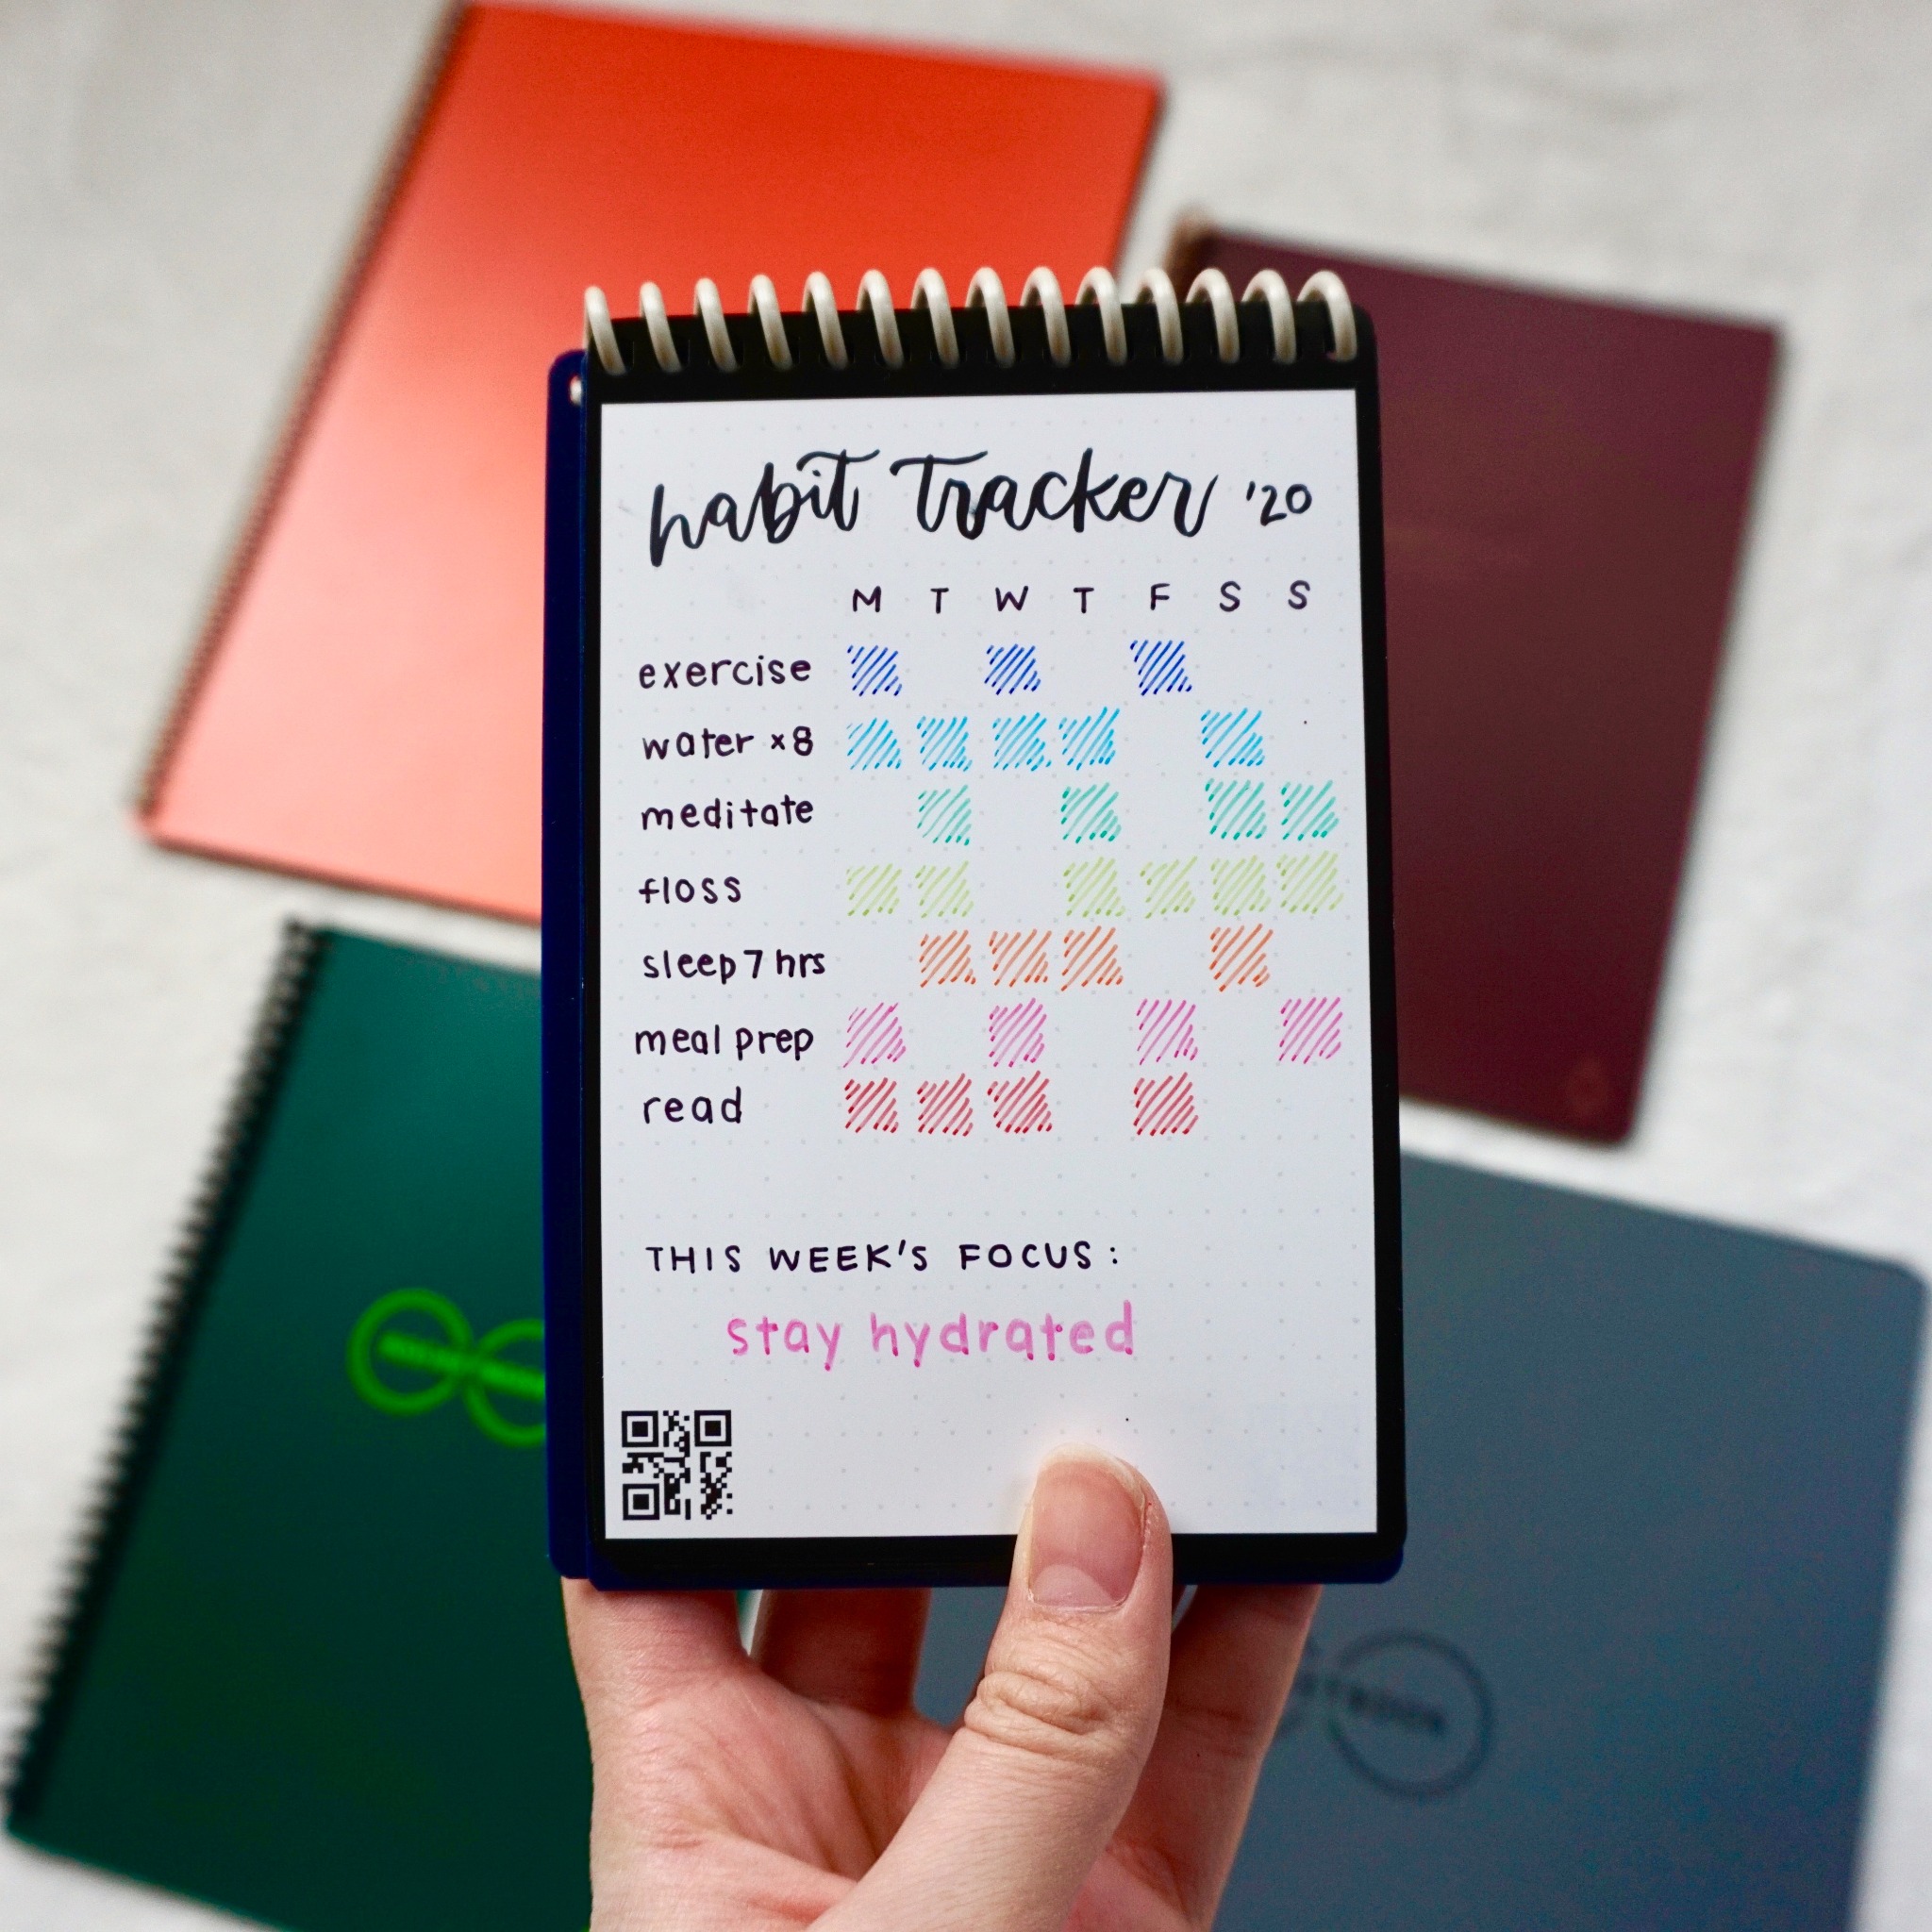 habit tracker '20
M T W T F S S
exercise
water x8
meditate
floss
sleep 7 hrs
meal prep
read
THIS WEEK'S FOCUS:
stay hydrated